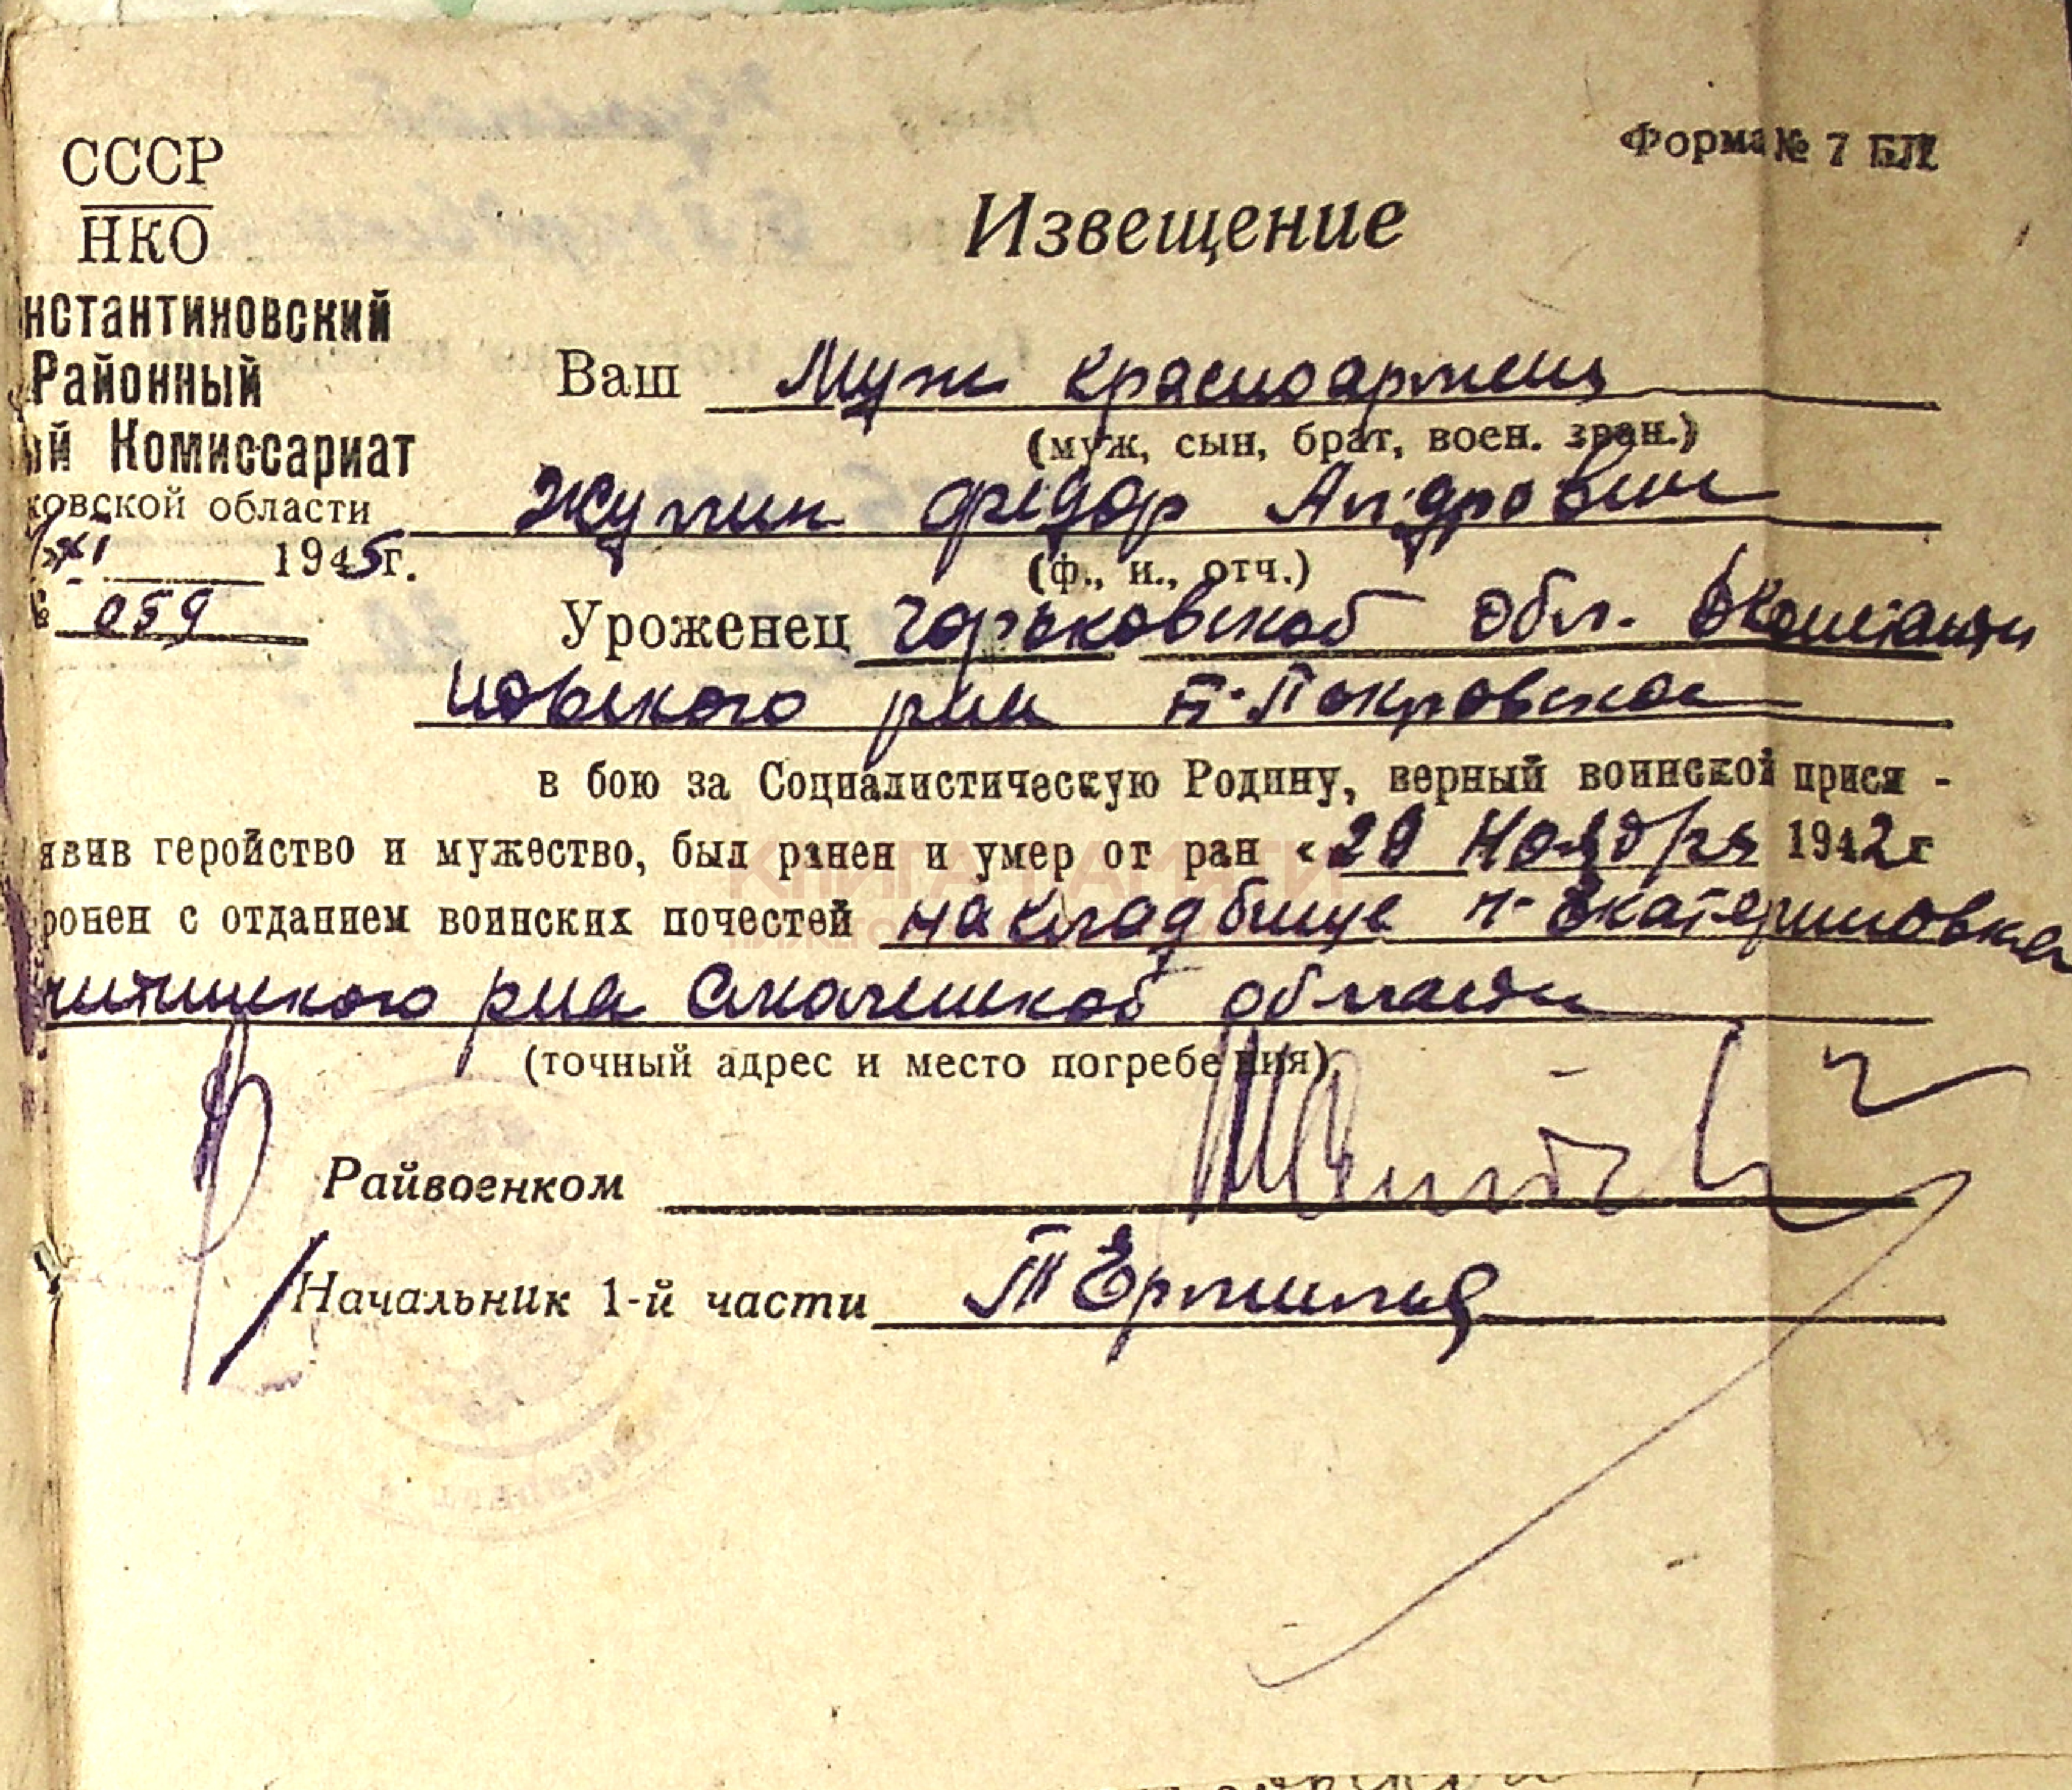 Форма № 7 БЛ
СССР
НКО
Извещение
нстантиновский
Районный
ый Комиссариат
ковской области
XI 1945г.
№ 059
Ваш муж красноармеец
(муж, сын, брат, воен. зван.)
Жупин Федор
(ф., и., отч.)
Уроженец Горьковской обл. Константи
новского рна Покровское
в бою за Социалистическую Родину, верный воинской прися -
явив геройство и мужество, был ранен и умер от ран « Ноября 1942г
ронен с отданием воинских почестей на кладбище Екатериновка
рна области
(точный адрес и место погребения)
Райвоенком
Начальник 1-й части
КНИГА ПАМЯТИ